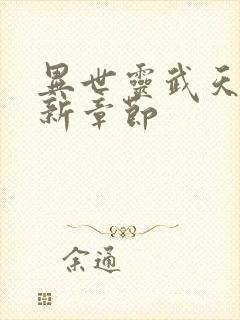 異世靈武天
新章節
余通